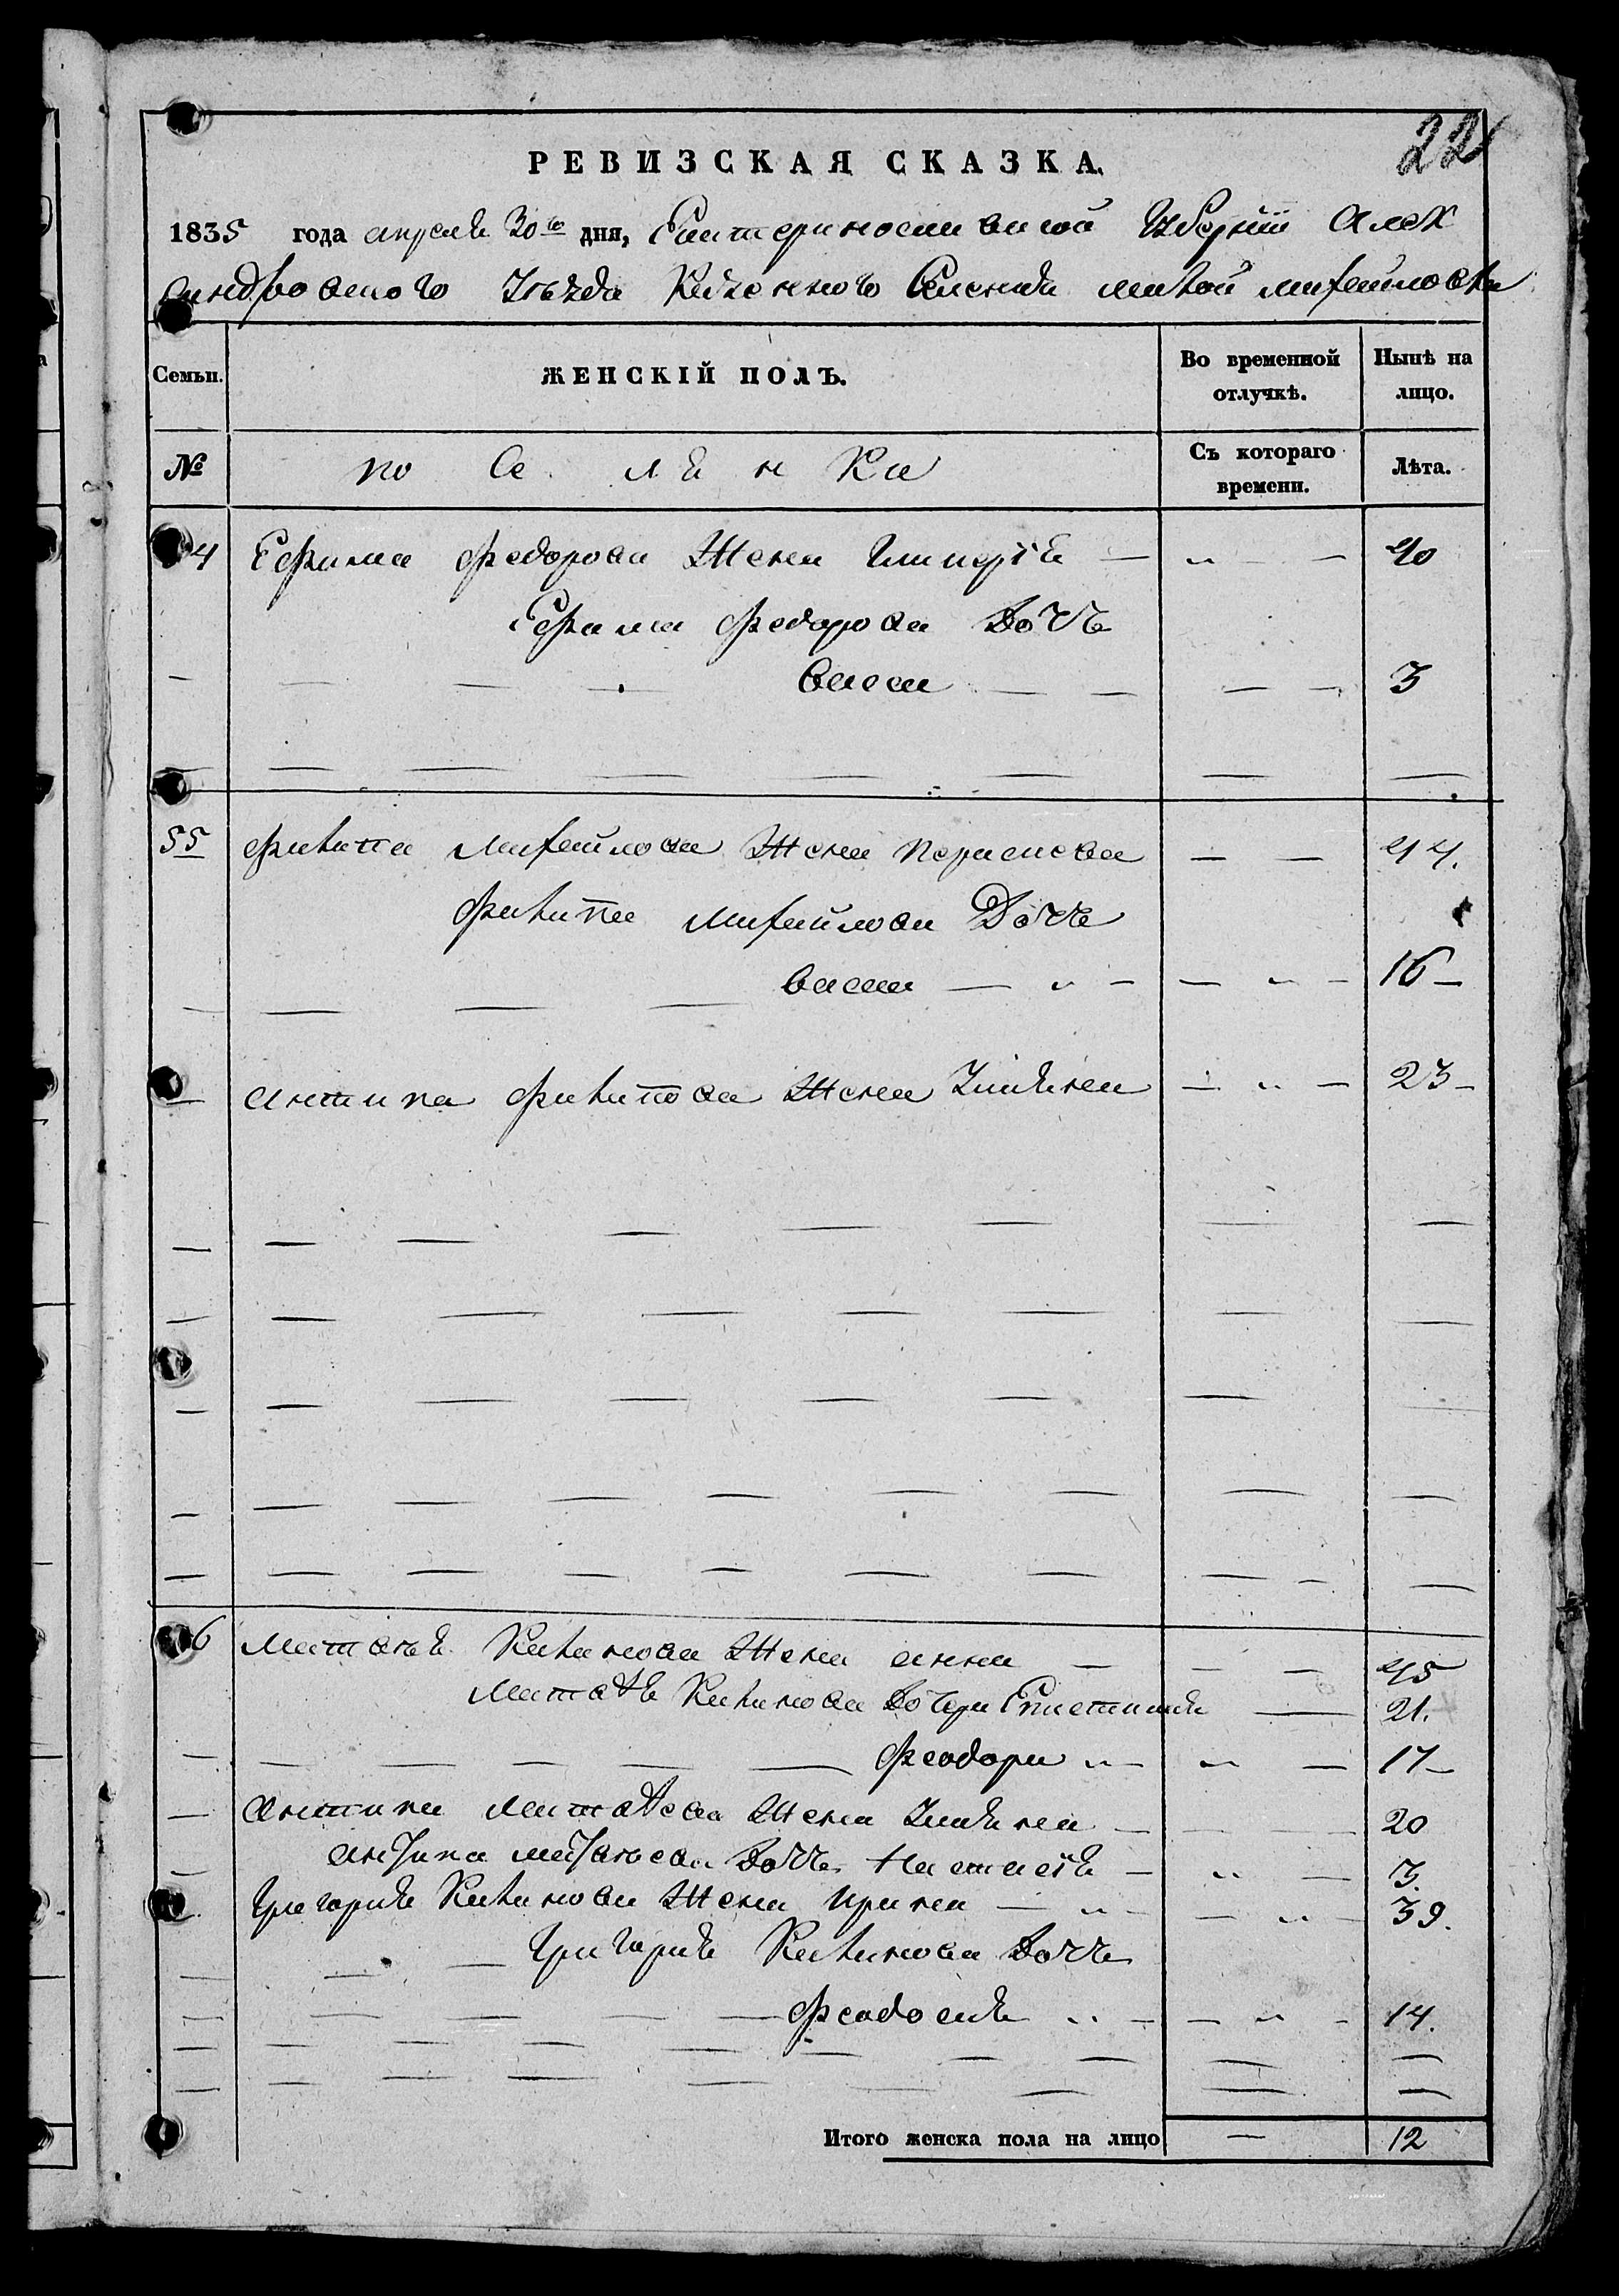 22
РЕВИЗСКАЯ СКАЗКА.
1835 года апреля 30го дня, Екатеринославской Губернии Алек
сандровского Уезда Казенного Селения малой михайловки
Семьи. ЖЕНСКІЙ ПОЛЪ. Во временной отлучкѣ. Нынѣ на лицо.
№ по се ля н ка Съ котораго времени. Лѣта.
4 Ефима федорова жена Гликерія — „ — 40
Ефима федорова дочь
васса — — — — 3
55 филипа михайлова жена — — 44.
филипа михайлова дочь
васса — „ — — „ — 16 —
антипа филипова жена Улияна — „ — 23 —
6 матвея жена анна — — — 45
матвея дочери — 21.
феодора „ — „ — 17 —
антипа матвеева жена Улияна — — — 20
антипа матвеева дочь Настасія — „ — 3.
григория жена ирина — „ — — „ — 39.
— григория дочь
— феодосия „ — — „ - 14.
Итого женска пола на лицо — 12